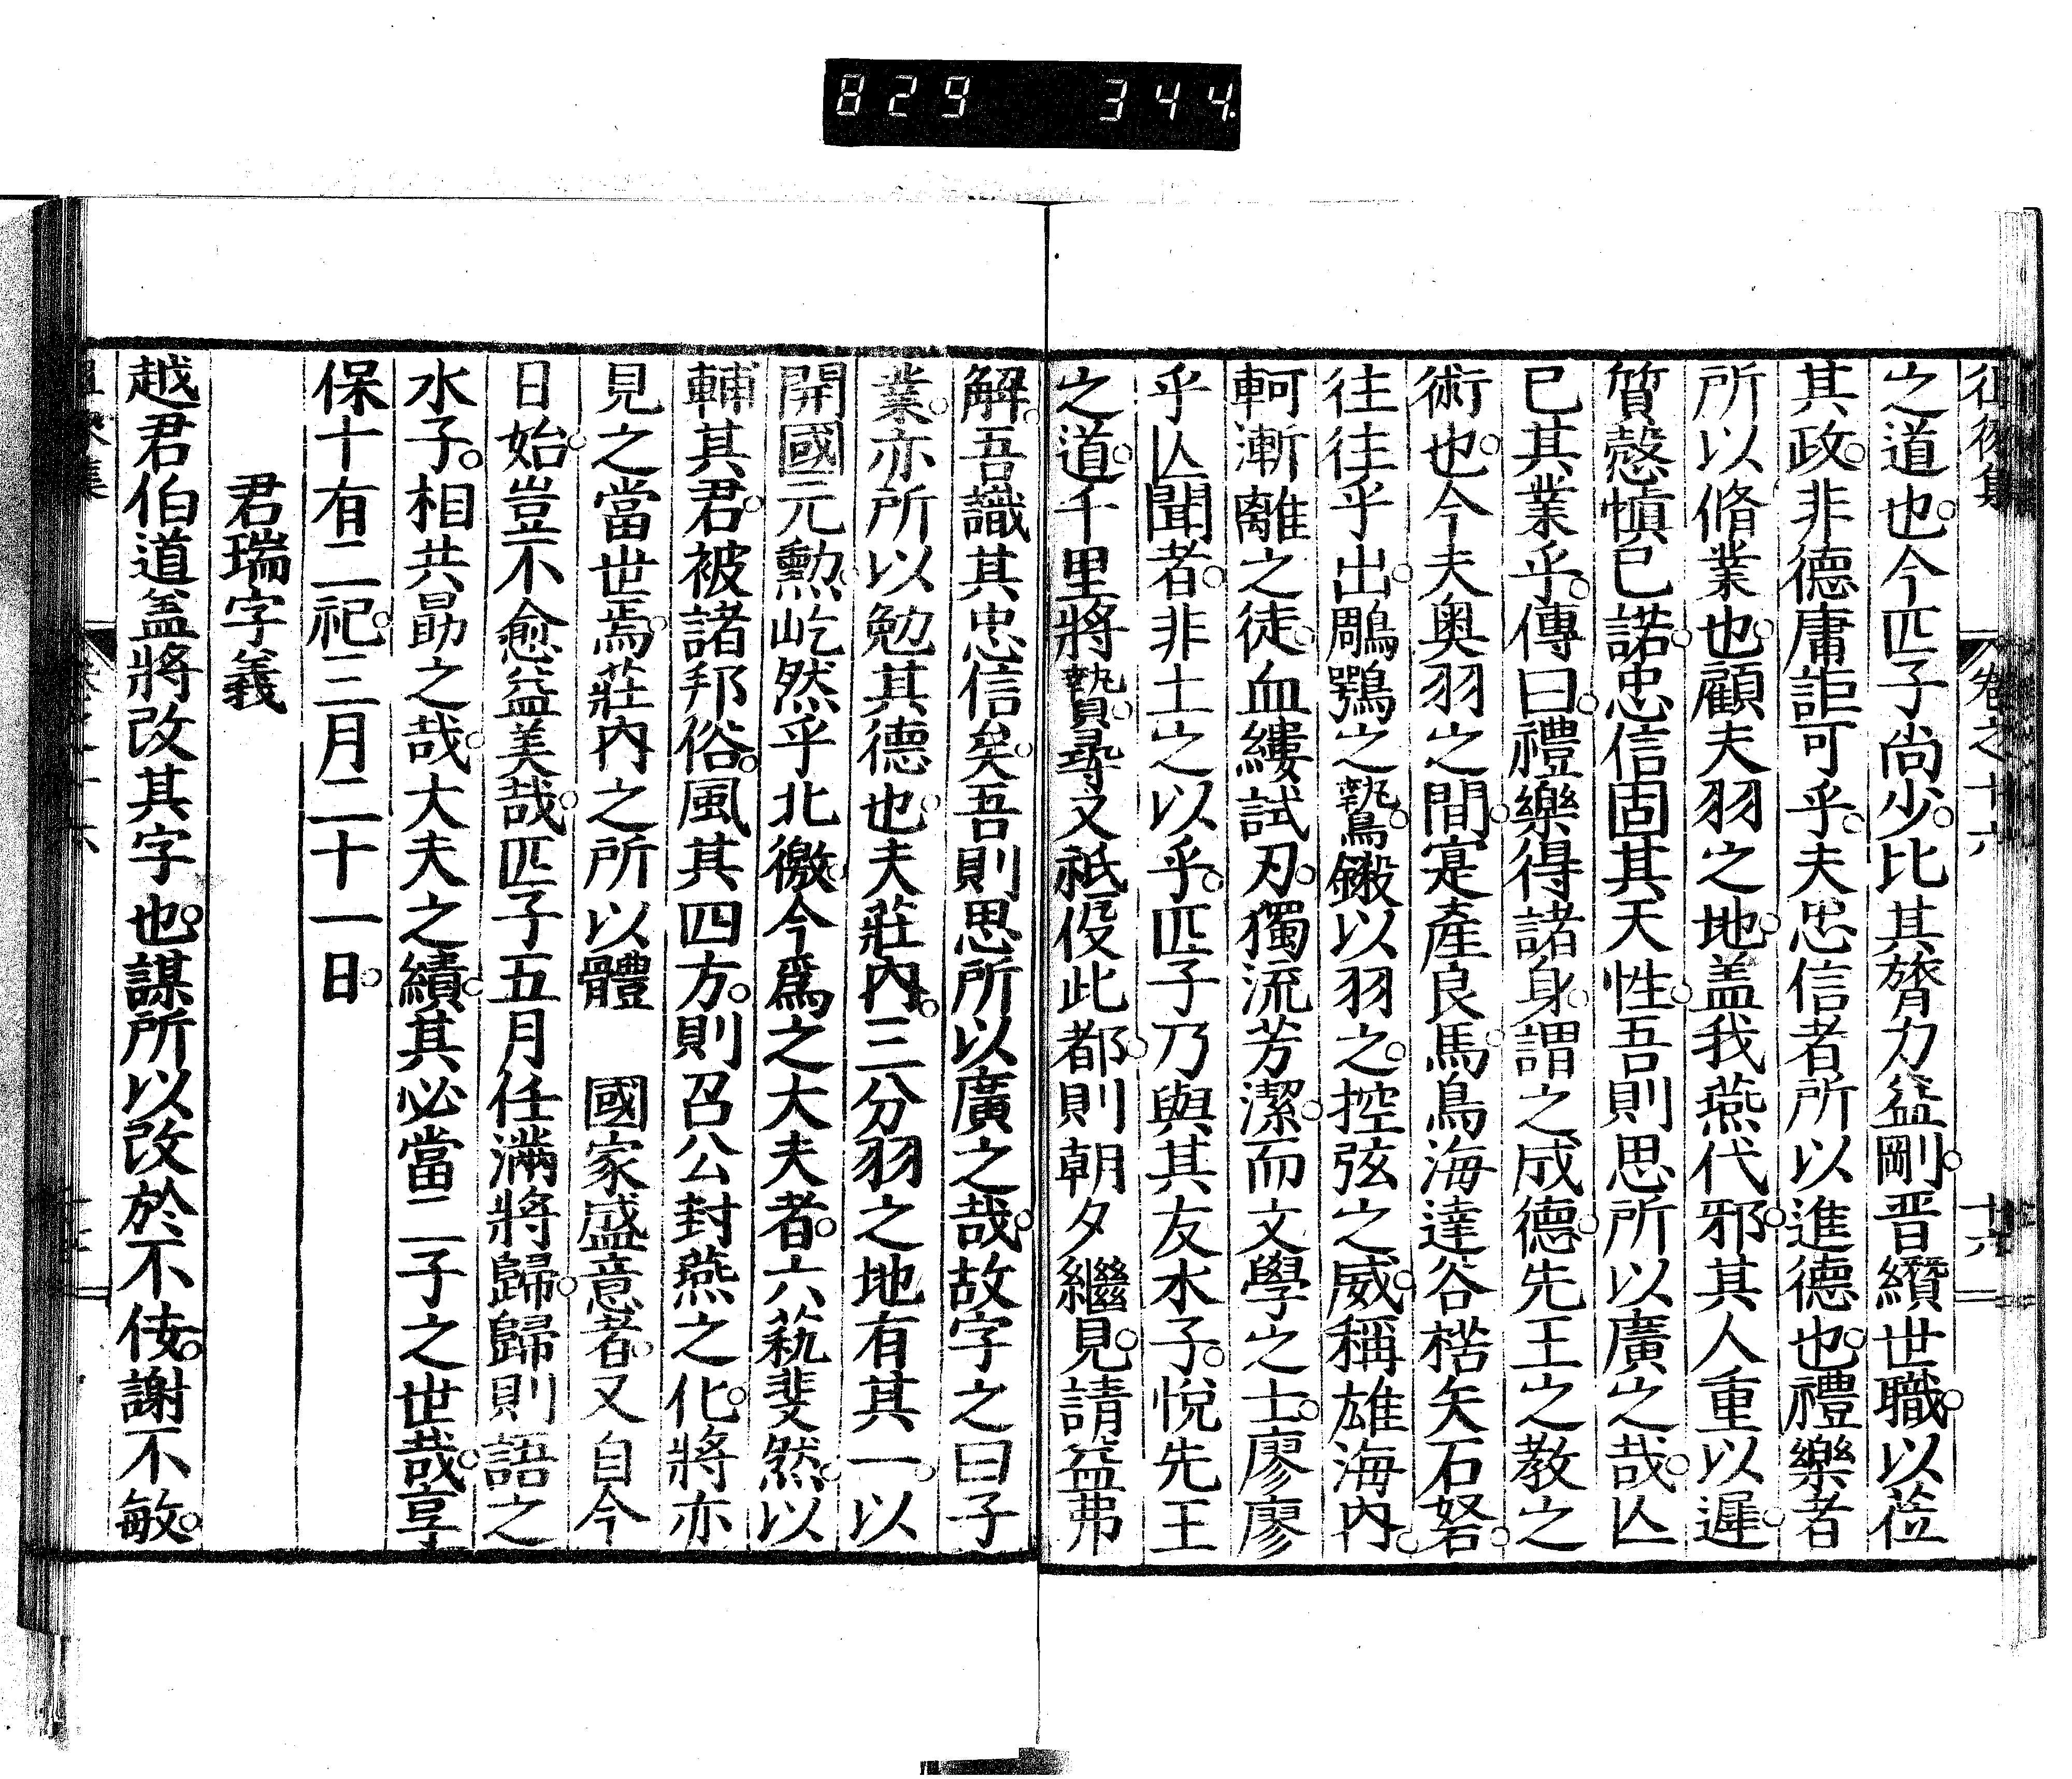 829 344
卷之十六 十六
之道也。今匹子尚少。比其膂力益剛。晋纘世職。以莅
其政。非德庸詎可乎。夫忠信者所以進德也。禮樂者
所以脩業也。顧夫羽之地。盖我燕代邪。其人重以遲。
質慤愼已諾。忠信固其天性。吾則思所以廣之哉。亾
已其業乎。傳曰。禮樂得諸身。謂之成德。先王之教之
術也。今夫奥羽之間。寔產良馬。鳥海達谷。楛矢石砮。
往往乎出。鵰鶚之鷙。鎩以羽之。控弦之威。稱雄海內。
軻漸離之徒。血縷試刃。獨流芳潔。而文學之士。廖廖
乎亾聞者。非土之以乎。匹子乃與其友水子。悅先王
之道。千里將贄。尋又祇役此都。則朝夕繼見。請益弗
解。吾識其忠信矣。吾則思所以廣之哉。故字之曰子
業。亦所以勉其德也。夫莊內。三分羽之地有其一。以
開國元勲。屹然乎北徼。今爲之大夫者。六蓺斐然。以
輔其君。被諸邦俗。風其四方。則召公封燕之化。將亦
見之當世焉。莊內之所以體 國家盛意者。又自今
日始。豈不愈益美哉。匹子五月任滿將歸。歸則語之
水子。相共勗之哉。大夫之績。其必當二子之世哉。享
保十有二祀。三月二十一日。
君瑞字義
越君伯道盖將改其字也。謀所以改於不佞。謝不敏。